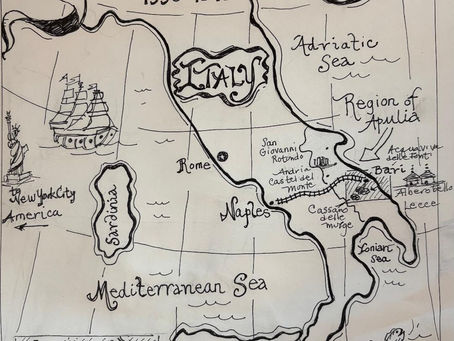 Adriatic
Sea
ITALY
Region of
Apulia
San
Giovanni
Rotondo
Acquaviva
delle Font.
Rome
Andria
Castel del
Monte
Bari
Alberobello
to
New York City
America
Sardinia
Naples
Cassano
delle
murge
Lecce
Ionian
Sea
Mediterranean Sea